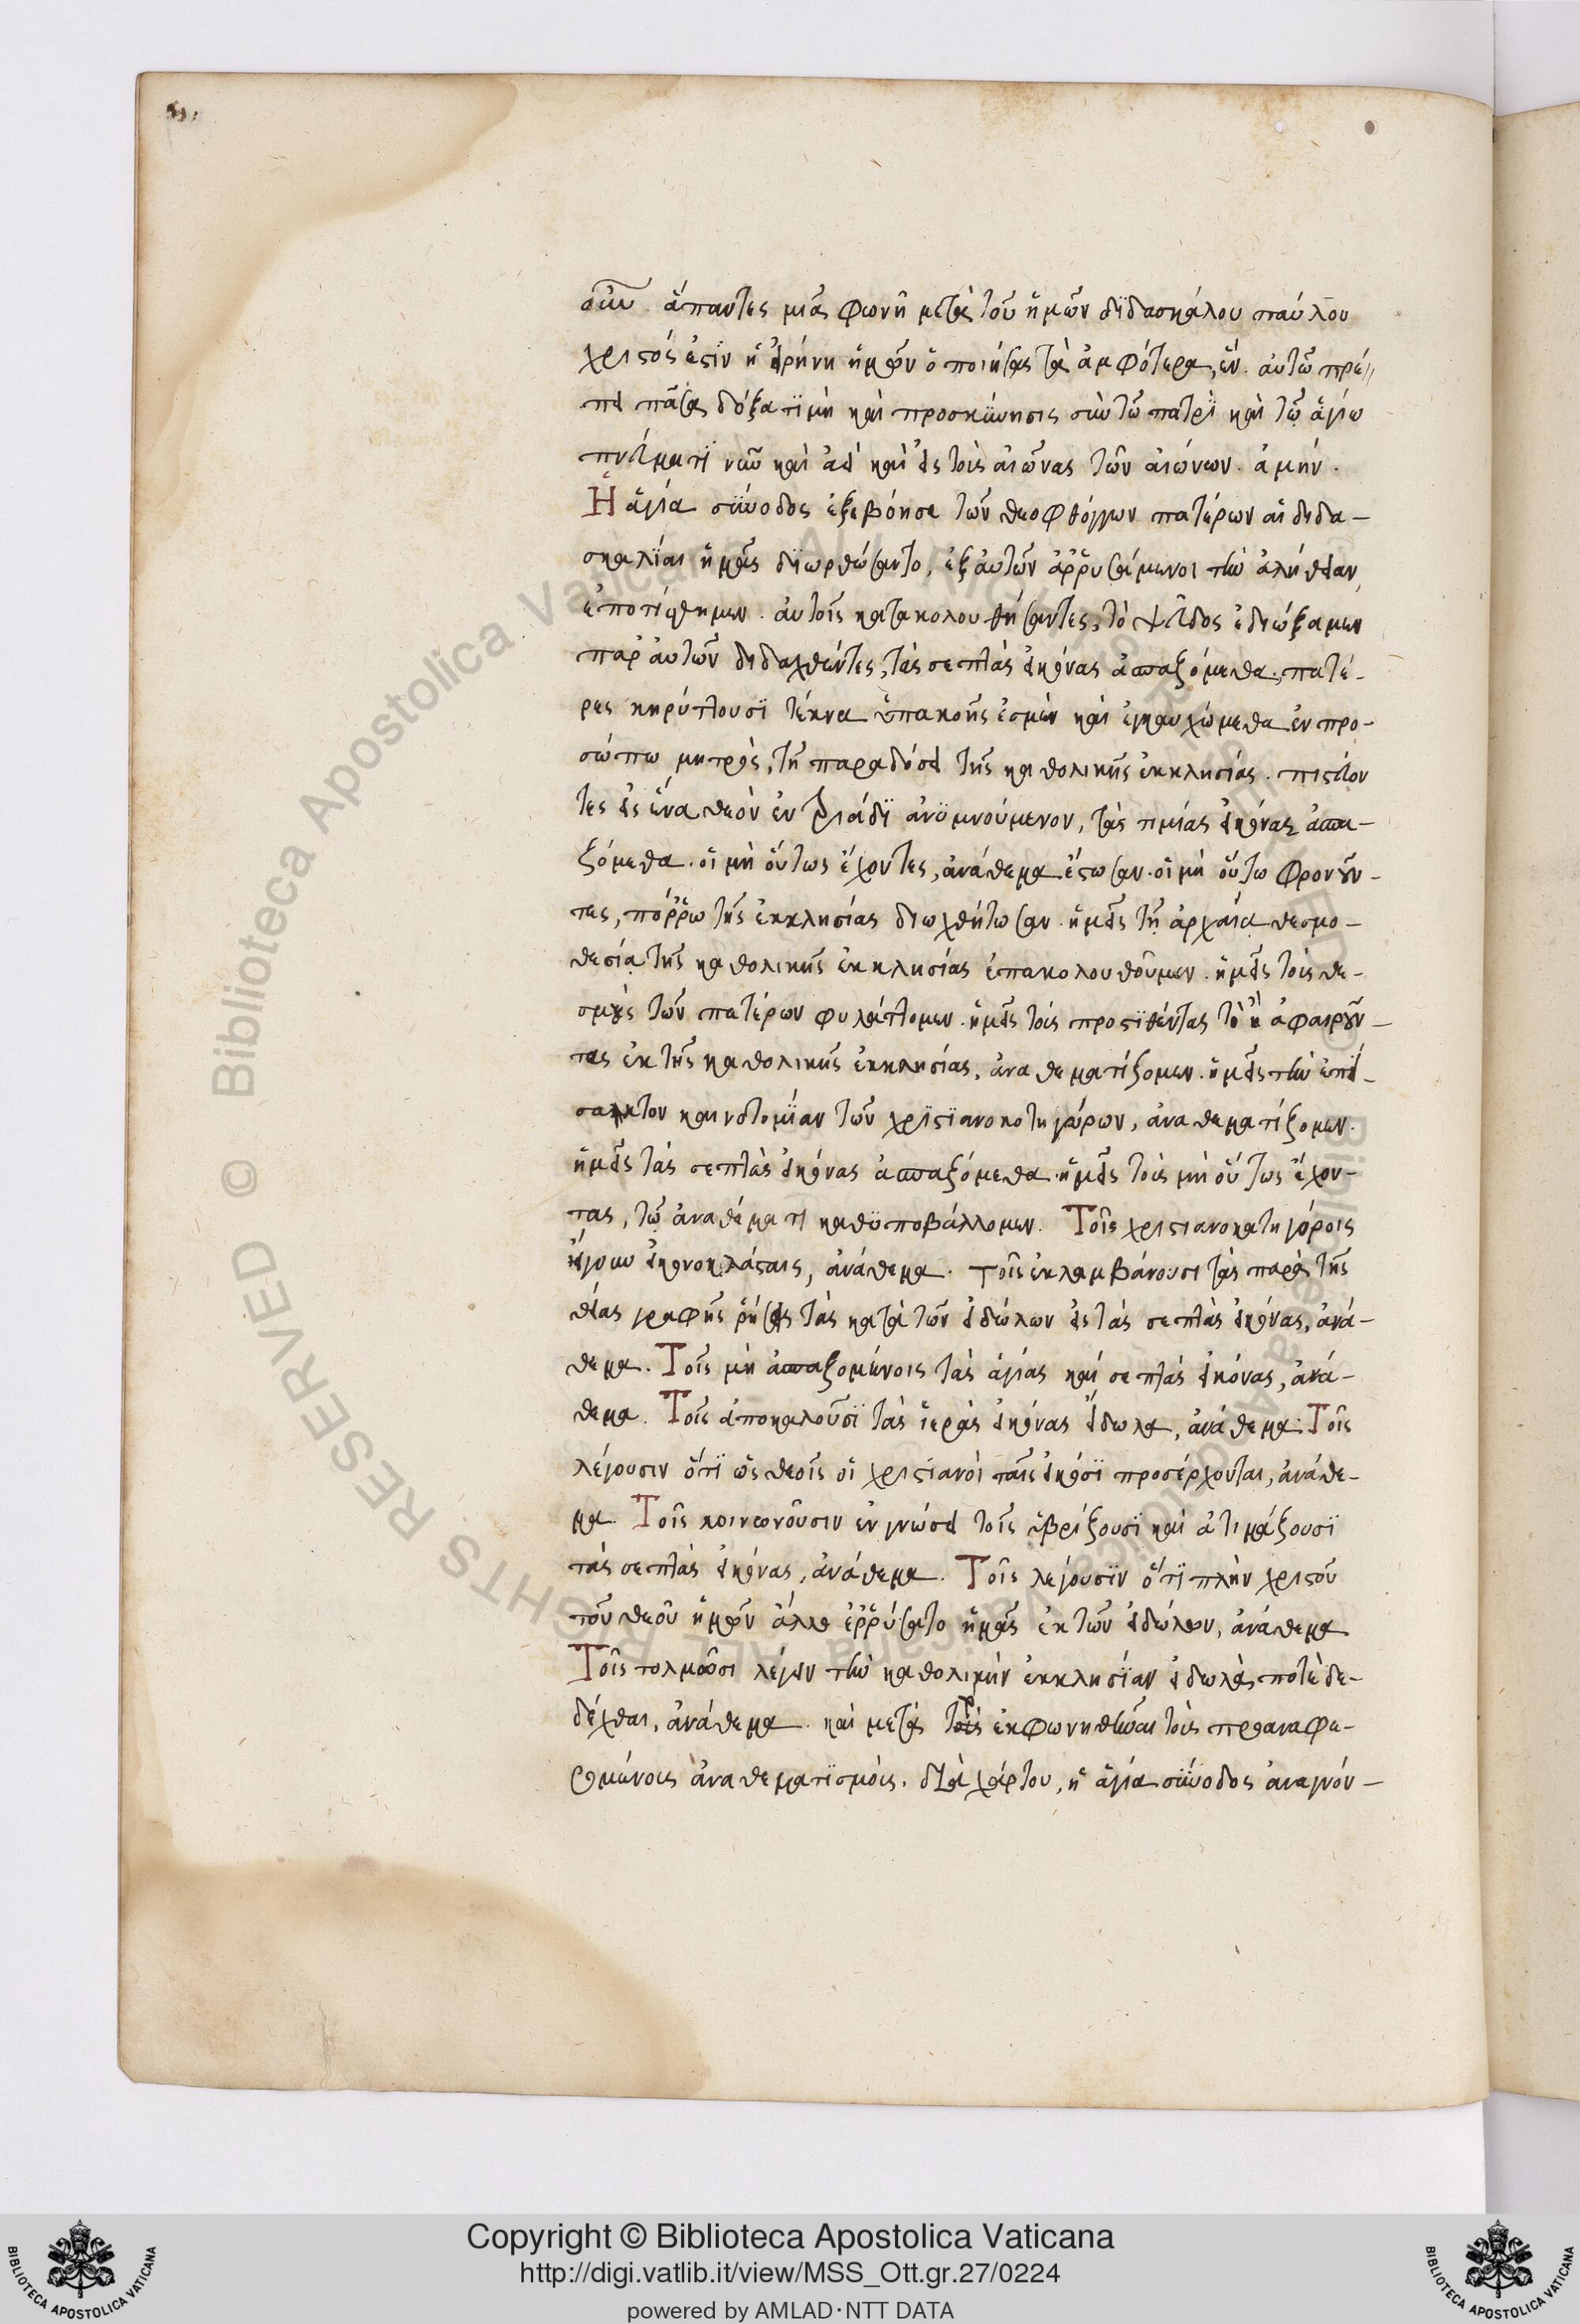 οὖν ἅπαντες μιᾷ φωνῆ μετὰ τοῦ ἡμῶν διδασκάλου παύλου
χριστός ἐστιν ἡ εἰρήνη ἡμῶν ὁ ποιήσας τὰ ἀμφότερα, ἕν. αὐτῶ πρέ-
πει πᾶσα δόξα τϊμὴ καὶ προσκύνησις σὺν τῶ πατρὶ καὶ τῶ ἁγίω
πνεύματϊ νῦν καὶ ἀεὶ καὶ εἰς τοὺς αἰῶνας τῶν αἰώνων. ἀμήν.
Ἡ ἁγία σύνοδος ἐξεβόησε τῶν θεοφθόγγων πατέρων αἱ διδα-
σκαλίαι ἡμᾶς διωρθώσαντο, ἐξ αὐτῶν ἀρρυσάμενοι τὴν ἀλήθειαν
ἐποτίσθημεν. αὐτοῖς κατακολουθήσαντες, τὸ ψεῦδος ἐδιώξαμεν
παρ' αὐτῶν διδαχθέντες, τὰς σεπτὰς εἰκόνας ἀσπαζόμεθα, πατέ-
ρες κηρύττουσϊ τέκνα ὑπακοῆς ἐσμὲν καὶ ἐγκαυχώμεθα ἐν προ-
σώπω μητρὸς, τῆ παραδόσει τῆς καθολικῆς ἐκκλησίας. πιστεύον
τες εἰς ἕνα θεὸν ἐν τριάδϊ ἀνϋμνούμενον, τὰς τιμίας εἰκόνας ἀσπα-
ζόμεθα. οἱ μὴ οὕτως ἔχοντες, ἀνάθεμα ἔστωσαν. οἱ μὴ οὕτω φρονοῦν-
τες, πόρρω τῆς ἐκκλησίας διωχθήτωσαν. ἡμεῖς τῆ ἀρχαία θεσμο-
θεσία τῆς καθολικῆς ἐκκλησίας ἐπακολουθοῦμεν. ἡμεῖς τοὺς θε-
σμοὺς τῶν πατέρων φυλάττομεν. ἡμεῖς τοὺς προστϊθέντας τὸ ἢ ἀφαιροῦν-
τας ἐκ τῆς καθολικῆς ἐκκλησίας, ἀναθεματίζομεν. ἡμεῖς τὴν ἐπεί-
σακτον καινοτομίαν τῶν χριστϊανοκατηγόρων, ἀναθεματίζομεν.
ἡμεῖς τὰς σεπτὰς εἰκόνας ἀσπαζόμεθα. ἡμεῖς τοὺς μὴ οὕτως ἔχον-
τας, τῶ ἀναθέματι καθϋποβάλλομεν. Τοῖς χριστιανοκατηγόροις
ἤγουν εἰκονοκλάσταις, ἀνάθεμα. Τοῖς ἐκλαμβάνουσι τὰς παρὰ τῆς
θείας γραφῆς ῥήσεις τὰς κατὰ τῶν εἰδώλων εἰς τὰς σεπτὰς εἰκόνας, ἀνά-
θεμα. Τοῖς μὴ ἀσπαζομένοις τὰς ἁγίας καὶ σεπτὰς εἰκόνας, ἀνά-
θεμα. Τοῖς ἀποκαλοῦσϊ τὰς ἱερὰς εἰκόνας εἴδωλα, ἀνάθεμα. Τοῖς
λέγουσιν ὅτϊ ὡς θεοῖς οἱ χριστϊανοὶ ταῖς εἰκόσϊ προσέρχονται, ἀνάθε-
μα. Τοῖς κοινωνοῦσιν ἐν γνώσει τοῖς ὑβρίζουσϊ καὶ ἀτιμάζουσϊ
τὰς σεπτὰς εἰκόνας, ἀνάθεμα. Τοῖς λέγουσϊν ὅτϊ πλὴν χριστοῦ
τοῦ θεοῦ ἡμῶν ἄλλο ἐρρύσατο ἡμᾶς ἐκ τῶν εἰδώλων, ἀνάθεμα
Τοῖς τολμῶσι λέγειν τὴν καθολικὴν ἐκκλησίαν εἴδωλα ποτὲ δε-
δέχθαι, ἀνάθεμα. καὶ μετὰ ἐκφωνηθῆναι τοὺς προαναφε-
ρομένους ἀναθεματϊσμούς. διὰ χάρτου, ἡ ἁγία σύνοδος ἀναγνόν-
Copyright © Biblioteca Apostolica Vaticana
http://digi.vatlib.it/view/MSS_Ott.gr.27/0224
powered by AMLAD·NTT DATA